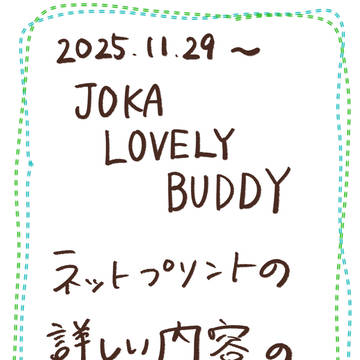 2025.11.29～
JOKA
LOVELY
BUDDY
ネットプリントの
詳しい内容の